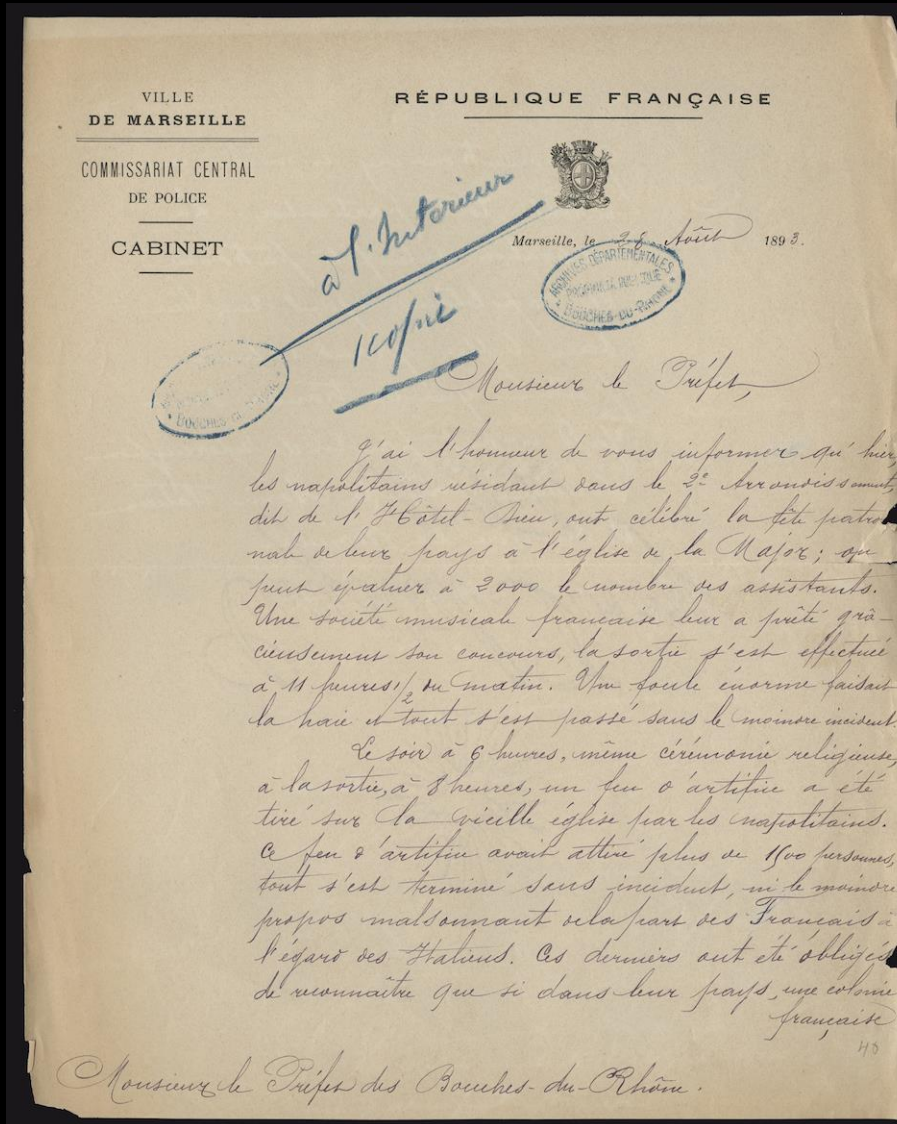 VILLE
DE MARSEILLE
COMMISSARIAT CENTRAL
DE POLICE
CABINET
RÉPUBLIQUE FRANÇAISE
Marseille, le 28 Août 1893.
à l'Interieur
copie
ARCHIVES DÉPARTEMENTALES
PROPRIÉTÉ PUBLIQUE
BOUCHES-DU-RHÔNE
BOUCHES-DU-RHÔNE
Monsieur le Préfet,
J'ai l'honneur de vous informer qu'hier,
les napolitains résidant dans le 2e Arrondissement,
dit de l'Hôtel-Dieu, ont célébré la fête patro-
nale de leur pays à l'église de la Major; on
peut évaluer à 2000 le nombre des assistants.
Une société musicale française leur a prêté grâ-
cieusement son concours, la sortie s'est effectuée
à 11 heures 1/2 du matin. Une foule énorme faisait
la haie et tout s'est passé sans le moindre incident.
Le soir à 6 heures, même cérémonie religieuse,
à la sortie, à 8 heures, un feu d'artifice a été
tiré sur la vieille église par les napolitains.
Ce feu d'artifice avait attiré plus de 1500 personnes,
tout s'est terminé sans incident, ni le moindre
propos malsonnant de la part des Français à
l'égard des Italiens. Ces derniers ont été obligés
de reconnaître que si dans leur pays, une colonie
française
40
Monsieur le Préfet des Bouches-du-Rhône.